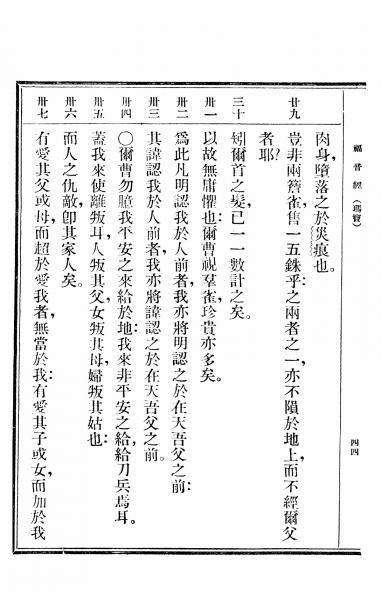 福音經 (瑪竇)
四四
肉身,墮落之於災痕也。
廿九 豈非兩簷雀售一五銖乎:之兩者之一,亦不隕於地上,而不經爾父
者耶?
三十 矧爾首之髮,已一一數計之矣。
卅一 以故無庸懼也:爾曹視羣雀,珍貴亦多矣。
卅二 爲此凡明認我於人前者,我亦將明認之於在天吾父之前:
卅三 其諱認我於人前者,我亦將諱認之於在天吾父之前。
卅四 〇爾曹勿臆我平安之來給於地:我來非平安之給,給刀兵焉耳。
卅五 蓋我來使離叛耳,人叛其父,女叛其母,婦叛其姑也:
卅六 而人之仇敵,卽其家人矣。
卅七 有愛其父或母,而超於愛我者,無當於我:有愛其子或女,而加於我